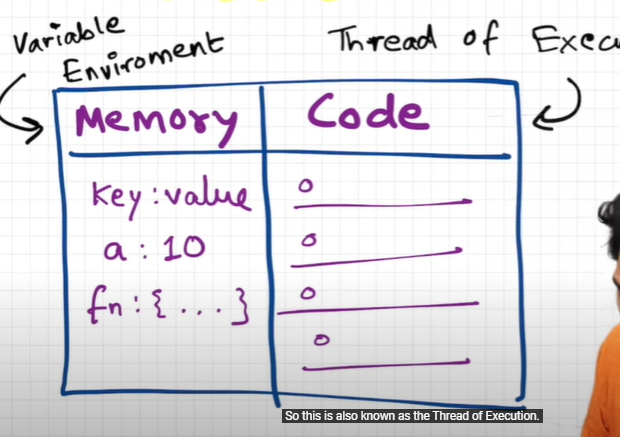 Variable
Enviroment
Thread of Execu
Memory
Code
key : value
a : 10
fn : { ... }
So this is also known as the Thread of Execution.